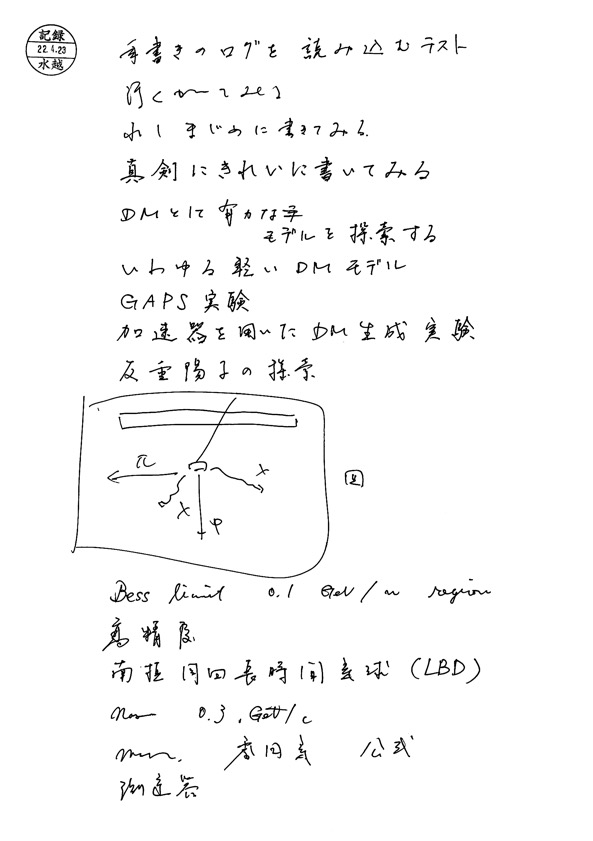 記録
22.4.23
水越
手書きのログを読み込むテスト
まじめに書きてみる.
真剣にきれいに書いてみる
DMとして有力な
モデルを探索する
いわゆる軽いDMモデル
GAPS実験
加速器を用いたDM生成実験
反重陽子の探索
π
X
X
P
図
Bess limit 0.1 GeV/n region
高精度
南極周回長時間気球 (LBD)
0.3 GeV/c
公式